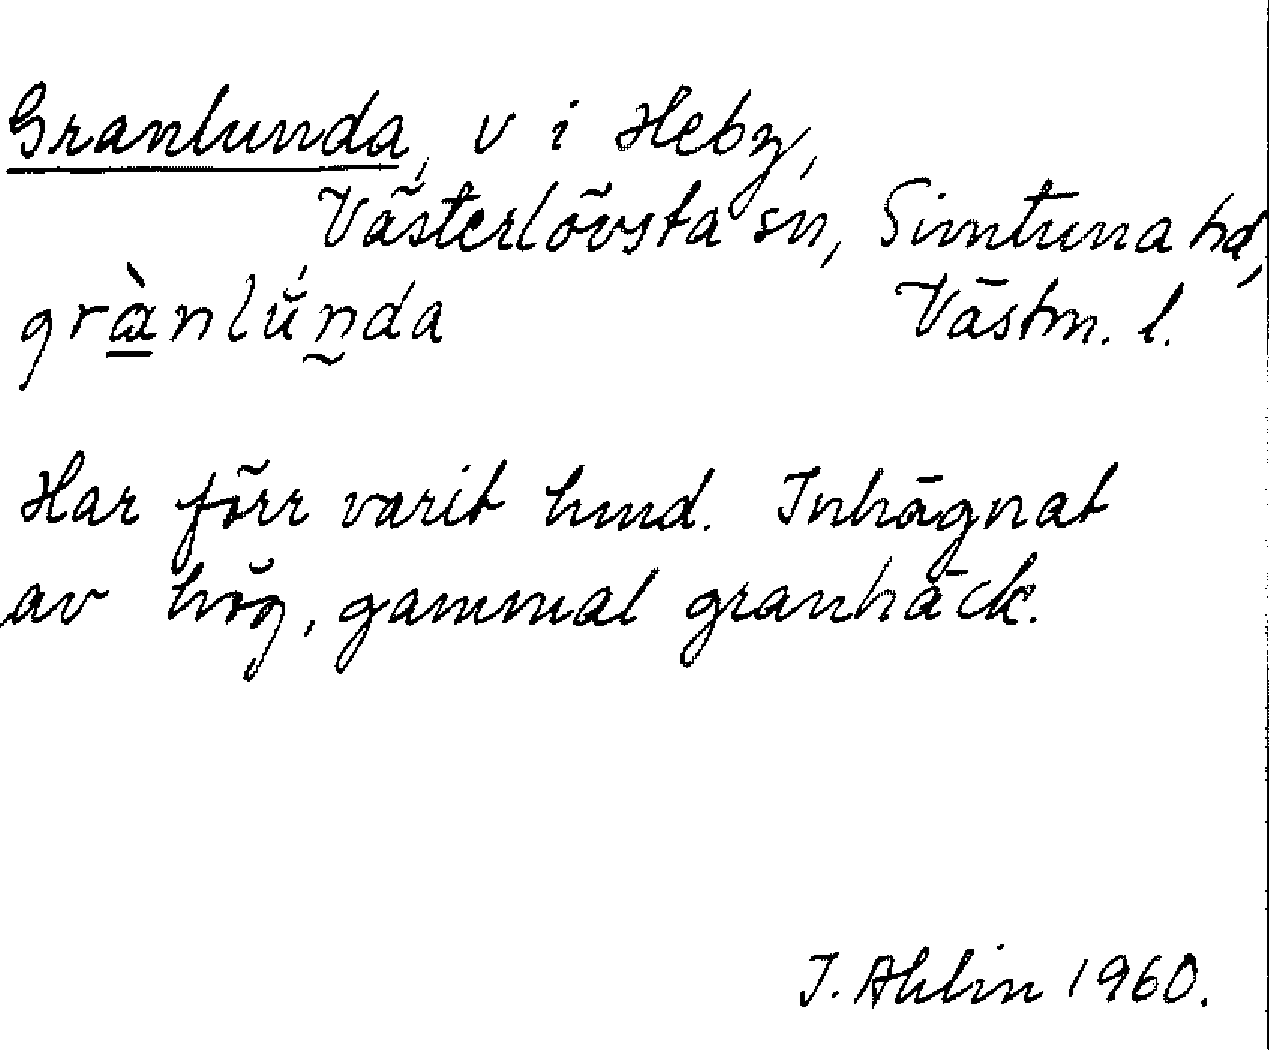 Granlunda, v i Heby,
Västerlövsta sn, Simtuna hd,
grànlúnda Västm. l.
Har förr varit lund. Inhägnat
av hög, gammal granhäck.
I. Ahlin 1960.